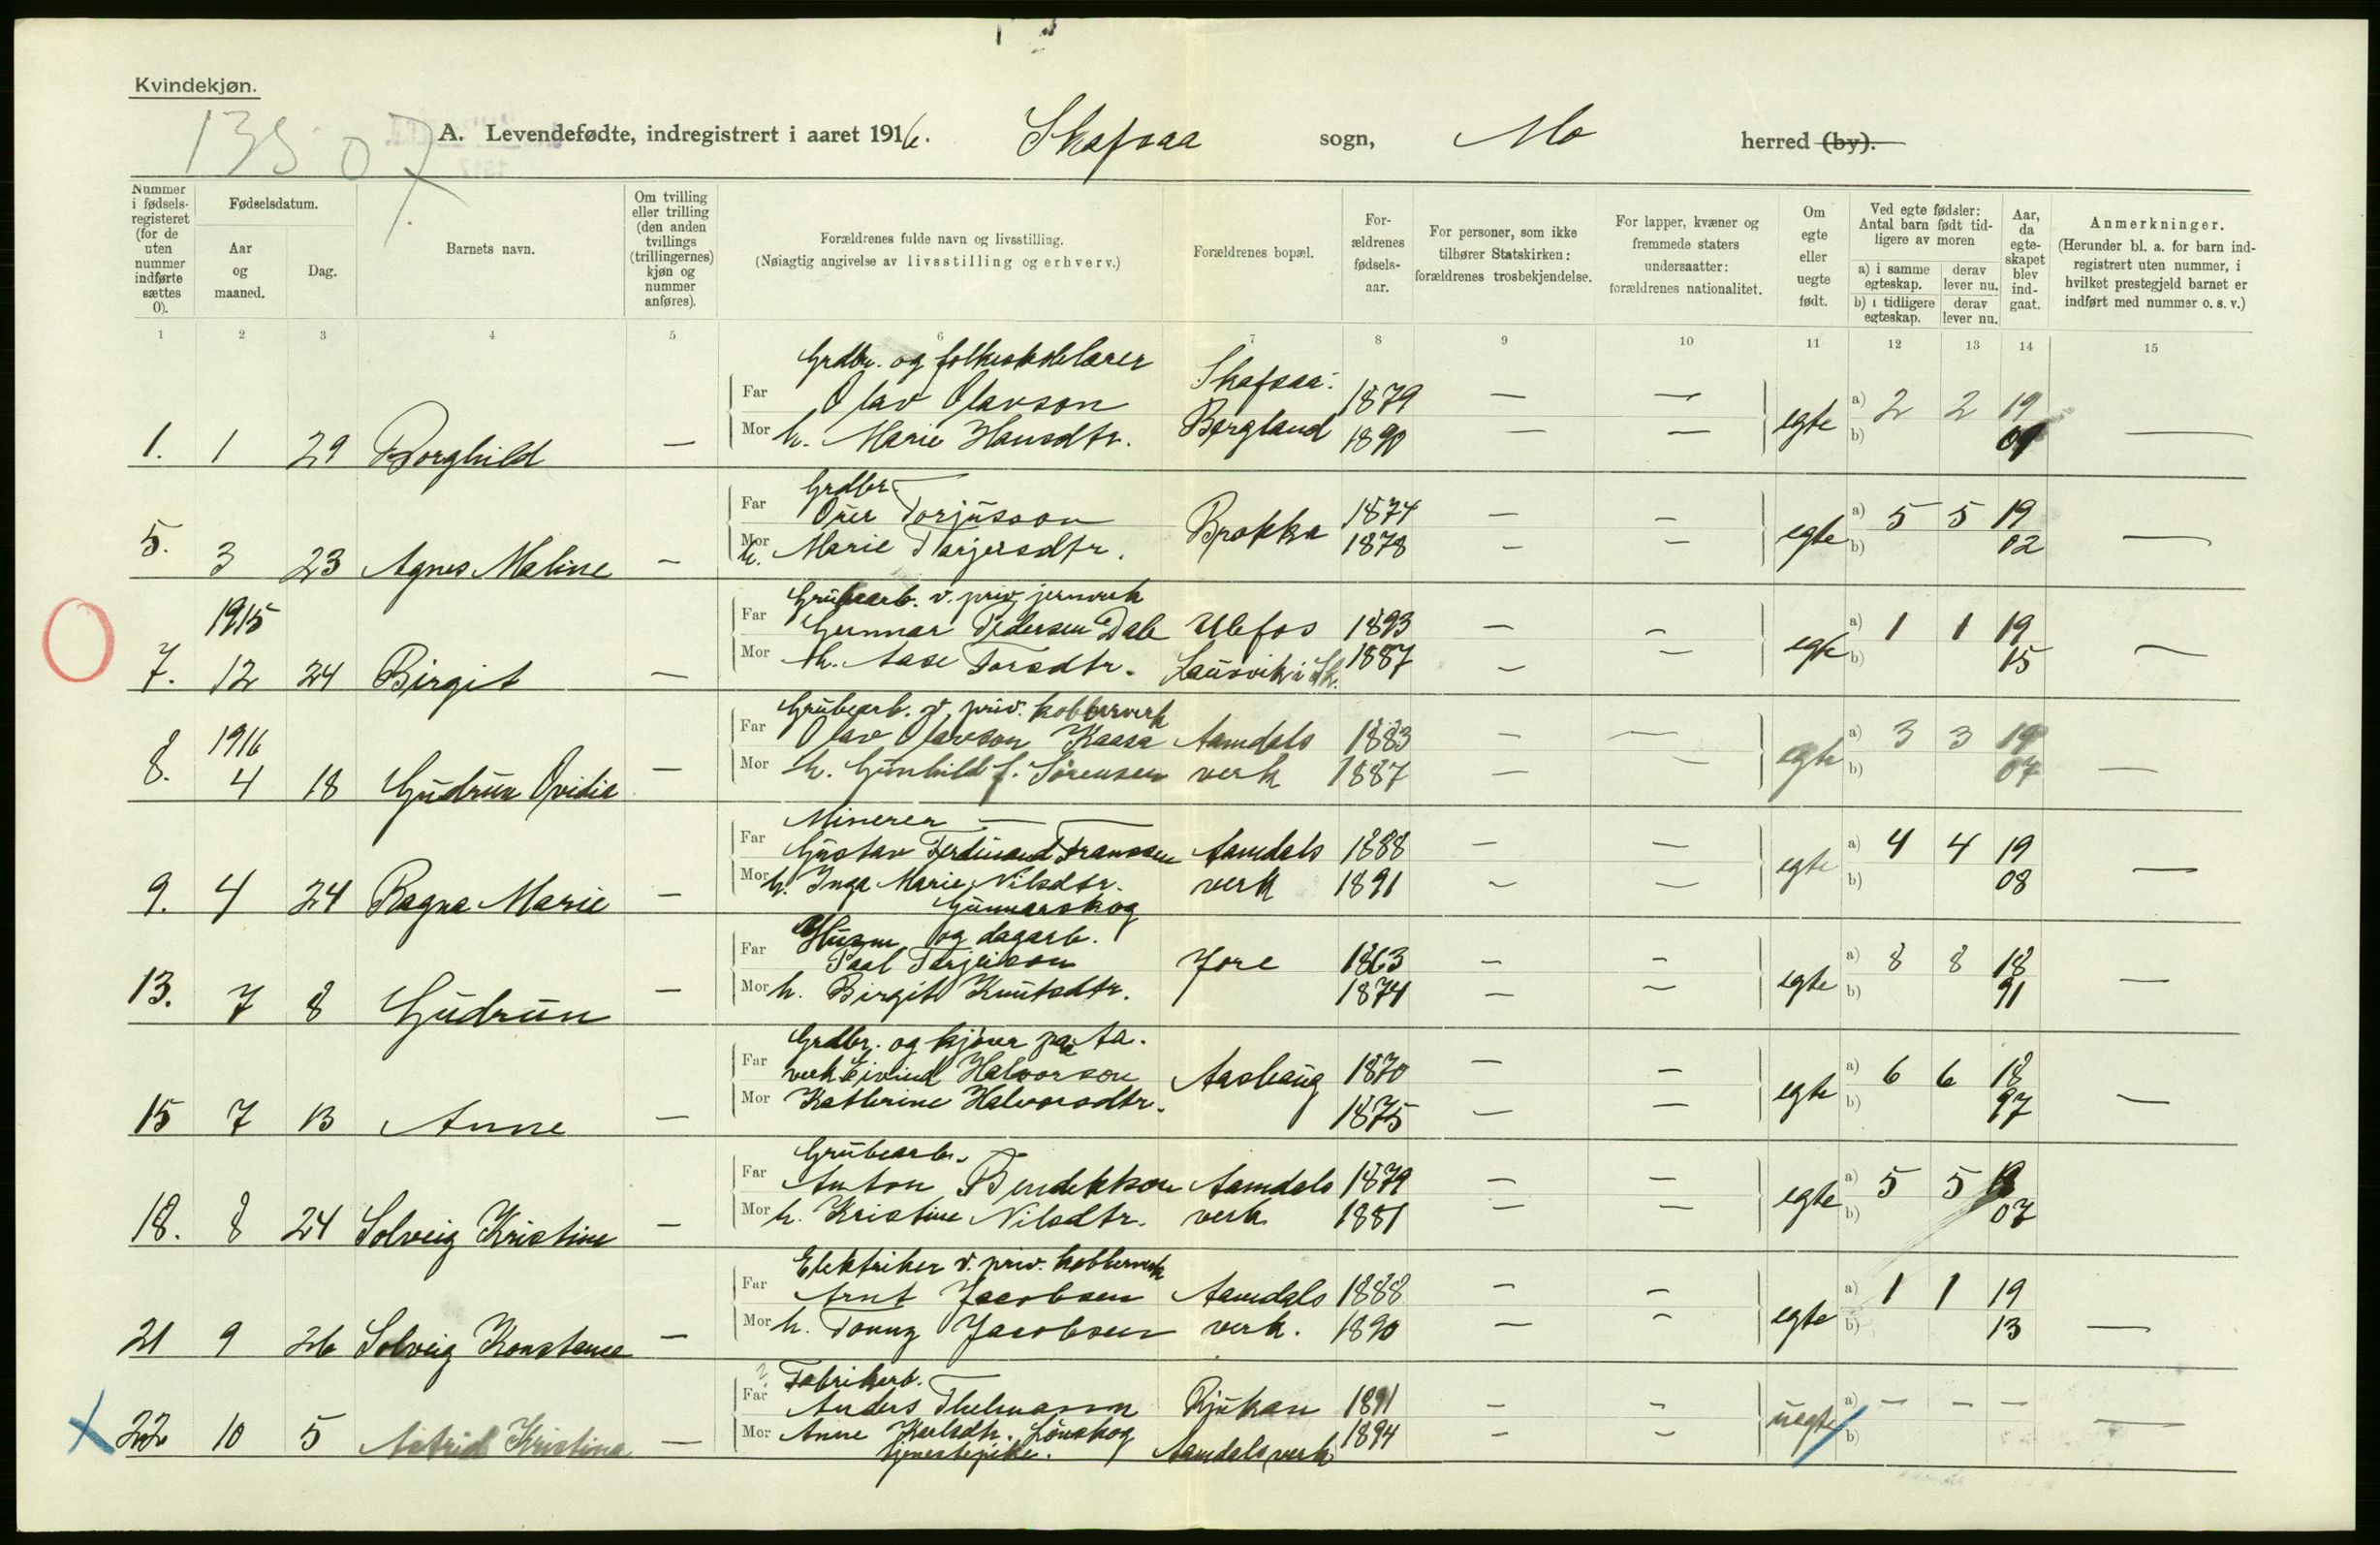 Kvindekjøn.
135 07
A. Levendefødte, indregistrert i aaret 1916. Skafsaa sogn, Mo herred (by).
Nummer i fødsels-registeret (for de uten nummer indførte sættes 0).
Fødselsdatum.
Aar og maaned.
Dag.
Barnets navn.
Om tvilling eller trilling (den anden tvillings (trillingernes) kjøn og nummer anføres).
Forældrenes fulde navn og livsstilling.
(Nøiagtig angivelse av livsstilling og erhverv.)
Forældrenes bopæl.
For-ældrenes fødsels-aar.
For personer, som ikke tilhører Statskirken: forældrenes trosbekjendelse.
For lapper, kvæner og fremmede staters undersaatter: forældrenes nationalitet.
Om egte eller uegte født.
Ved egte fødsler: Antal barn født tid-ligere av moren
a) i samme egteskap.
derav lever nu.
b) i tidligere egteskap.
derav lever nu.
Aar, da egte-skapet blev ind-gaat.
Anmerkninger.
(Herunder bl. a. for barn ind-registrert uten nummer, i hvilket prestegjeld barnet er indført med nummer o. s. v.)
1 2 3 4 5 6 7 8 9 10 11 12 13 14 15
Grdbr. og folkeskolelærer
Far Olav Olavson Skafsaa: 1879 — — a) 2 2 19
Mor h. Marie Hansdtr. Bergland 1890 — — egte b) 09 —
1. 1 29 Borghild —
Grdbr.
Far Over Torjusson Brokka 1874 — — a) 5 5 19
Mor h. Marie Tarjeisdtr. 1878 — — egte b) 02 —
5. 3 23 Agnes Maline —
Grubearb. v. priv. jernverk
Far Gunnar Pedersen Dale Ulefos 1893 — — a) 1 1 19
Mor h. Aase Torsdtr. Lausvik i Sk. 1887 — — egte b) 15 —
1915
7. 12 24 Birgit —
Grubearb. v. priv. kobberverk
Far Olav Olavson Kaasa Aamdals 1883 — — a) 3 3 19
Mor h. Gunhild f. Sørensen verk 1887 — — egte b) 07 —
1916
8. 4 18 Gudrun Ovidia —
Minerer — —
Far Gustav Ferdinand Franssen Aamdals 1888 — — a) 4 4 19
Mor h. Inga Marie Nilsdtr. verk 1891 — — egte b) 08 —
Gunnarskog
9. 4 24 Ragna Marie —
Husm. og dagarb.
Far Paal Tarjeison Jore 1863 — — a) 8 8 18
Mor h. Birgit Knutsdtr. 1874 — — egte b) 91 —
13. 7 8 Gudrun —
Grdbr. og kjører paa Aa.
Far verk Eivind Halvorson Aashaug 1870 — — a) 6 6 18
Mor Kathrine Halvorsdtr. 1875 — — egte b) 97 —
15 7 13 Anne —
Grubearb.
Far Anton Bendikson Aamdals 1879 — — a) 5 5
Mor h. Kristine Nilsdtr. verk 1881 — — egte b) 07
18. 8 24 Solveig Kristine —
Elektriker v. priv. kobberverk
Far Arnt Jacobsen Aamdals 1888 — — a) 1 1 19
Mor h. Jacobsen verk. 1890 — — egte b) 13 —
21 9 26 Solveig Konstanse —
? Fabrikarb.
Far Anders Rjukan 1891 — — a) — — —
Mor Anne Karlsdtr. Lönskog 1894 — — uegte b) —
tjenestepike. Aamdals verk
X 22 10 5 Astrid Kristina —